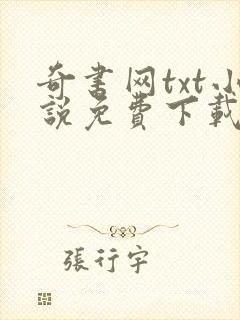 奇書网txt小
說免費下載
張行宇